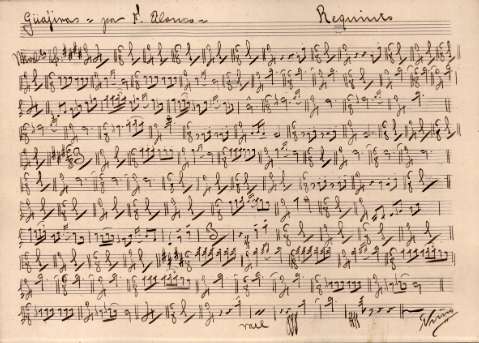 Guajiras = por F. Alonso = Requinto
Modto
rall